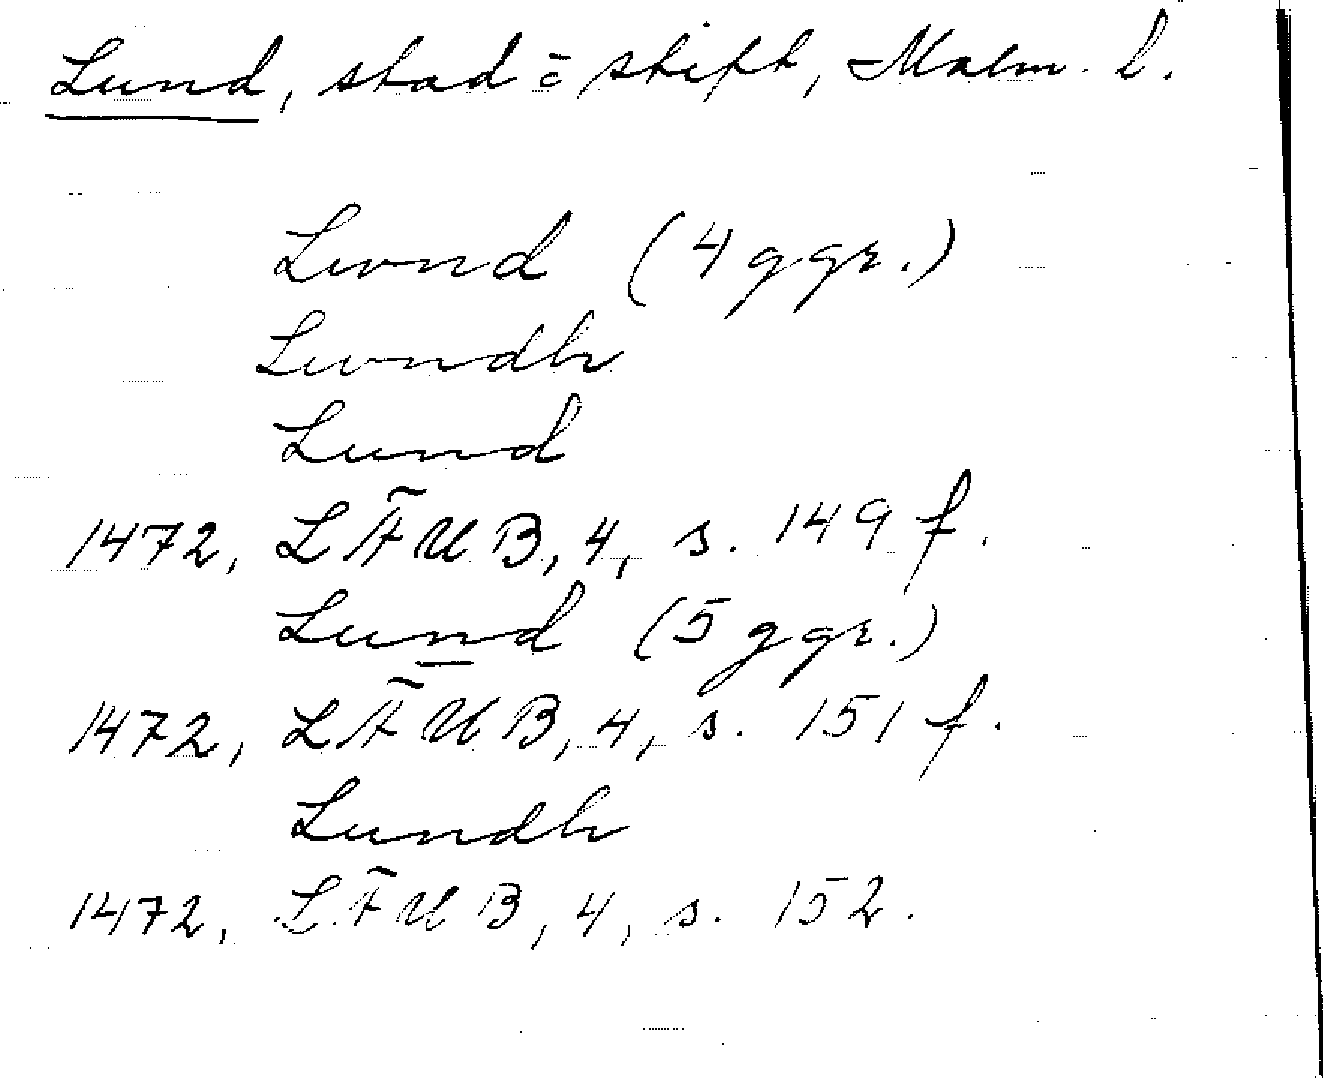 Lund, stad o stift, Malm. l.
Lwnd (4 ggr.)
Lwndh
Lund
1472, LÄUB, 4, s. 149 f.
Lund (5 ggr.)
1472, LÄUB, 4, s. 151 f.
Lundh
1472, LÄUB, 4, s. 152.